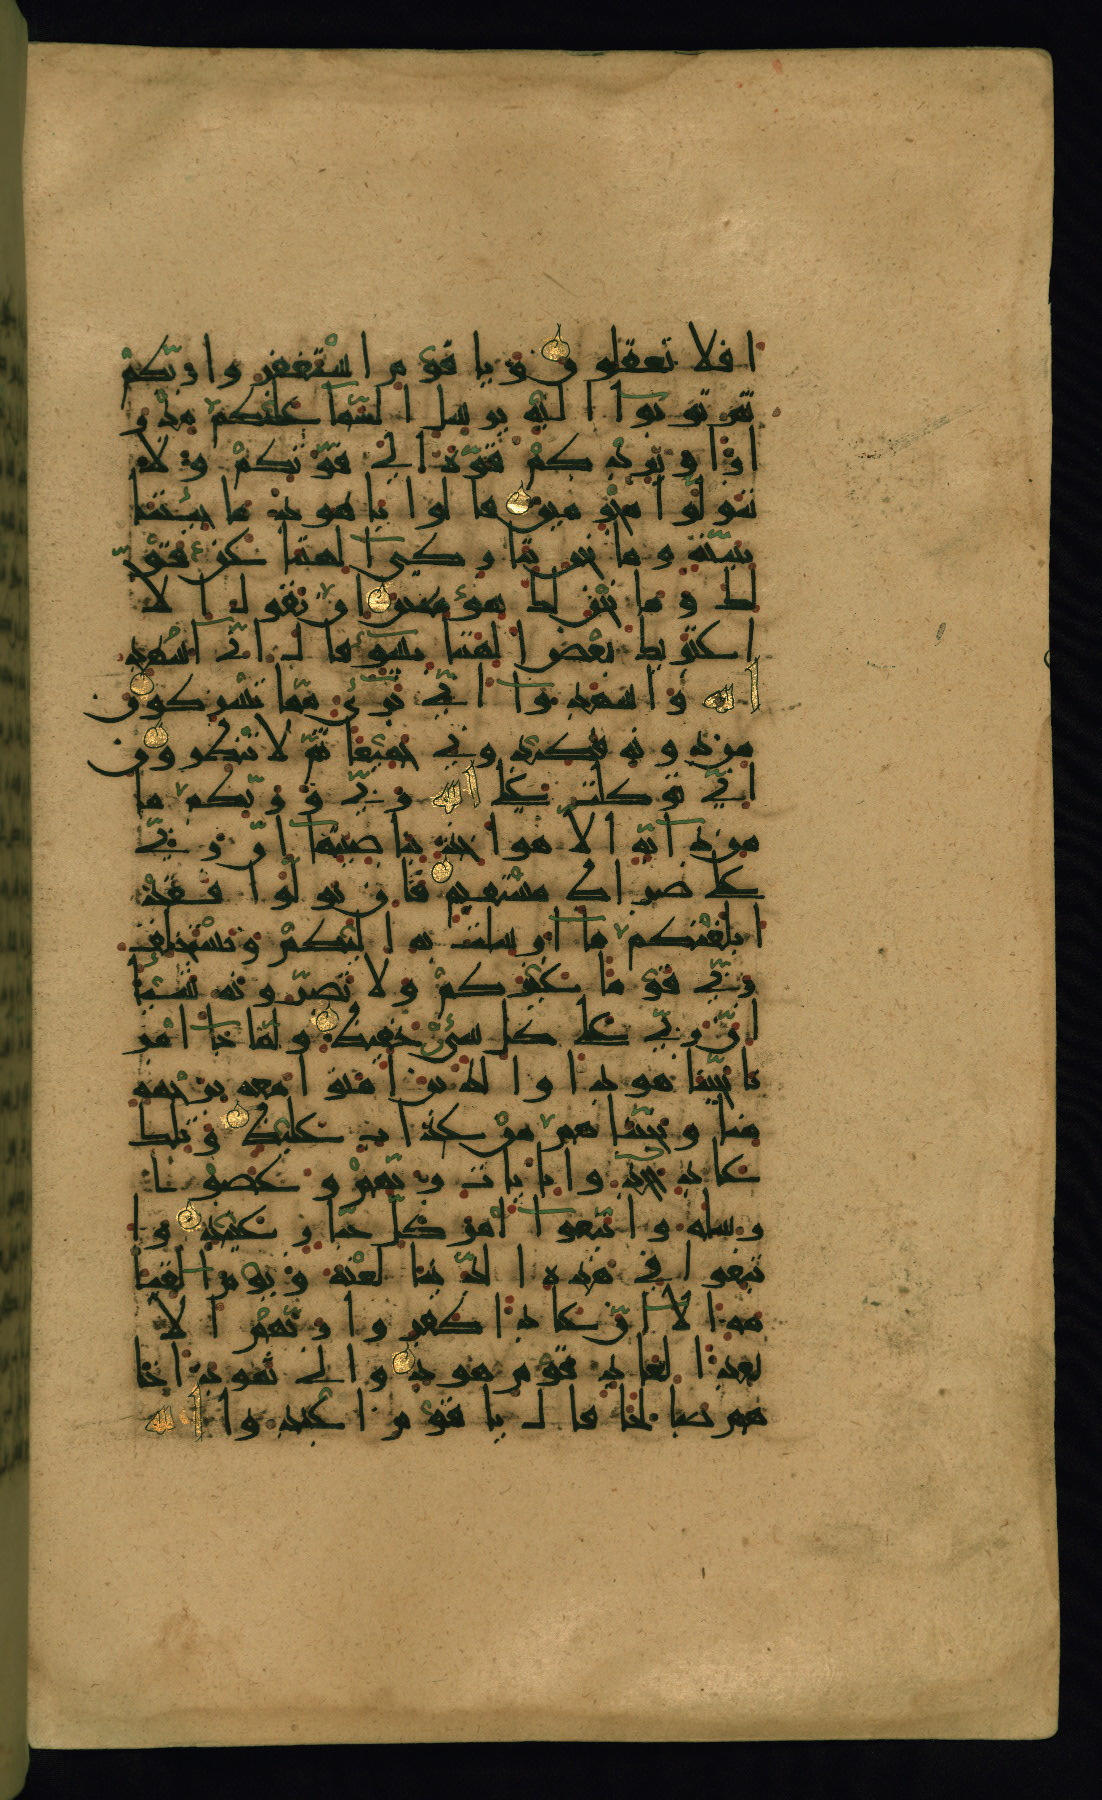 افلا تعقلون ويا قوم استغفروا ربكم
ثم توبوا اليه يرسل السما عليكم مد ر
ارا ويزد كم قوة الى قوتكم ولا
تتولوا مجرمين قالوا يا هود ما جئتنا
ببينة وما نحن بتا ركي الهتنا عن قو
لك وما نحن لك بمؤمنين ان نقول ا لا
اعتريك بعض الهتنا بسو قا ل اني اشهد
الله واشهدوا اني بري مما تشركون
من دونه فكيدوني جميعا ثم لا تنظرون
اني توكلت على الله ربي وربكم ما
من دابة الا هو اخذ بناصيتها ان ربي
على صراط مستقيم فان تولوا فقد
ابلغتكم ما ارسلت به اليكم ويستخلف
ربي قوما غيركم ولا تضرونه شيئا
ان ربي على كل شئ حفيظ ولما جا امر
نا نجينا هودا والذين امنوا معه برحمة
منا ونجينا هم من عذاب غليظ وتلك
عاد جحدوا بايات ربهم وعصوا
رسله واتبعوا امر كل جبا ر عنيد وا
تبعوا في هذه الدنيا لعنة ويوم القيا
مة الا ان عادا كفروا ربهم ا لا
بعدا لعاد قوم هود والى ثمود اخا
هم صالحا قا ل يا قوم اعبدوا الله